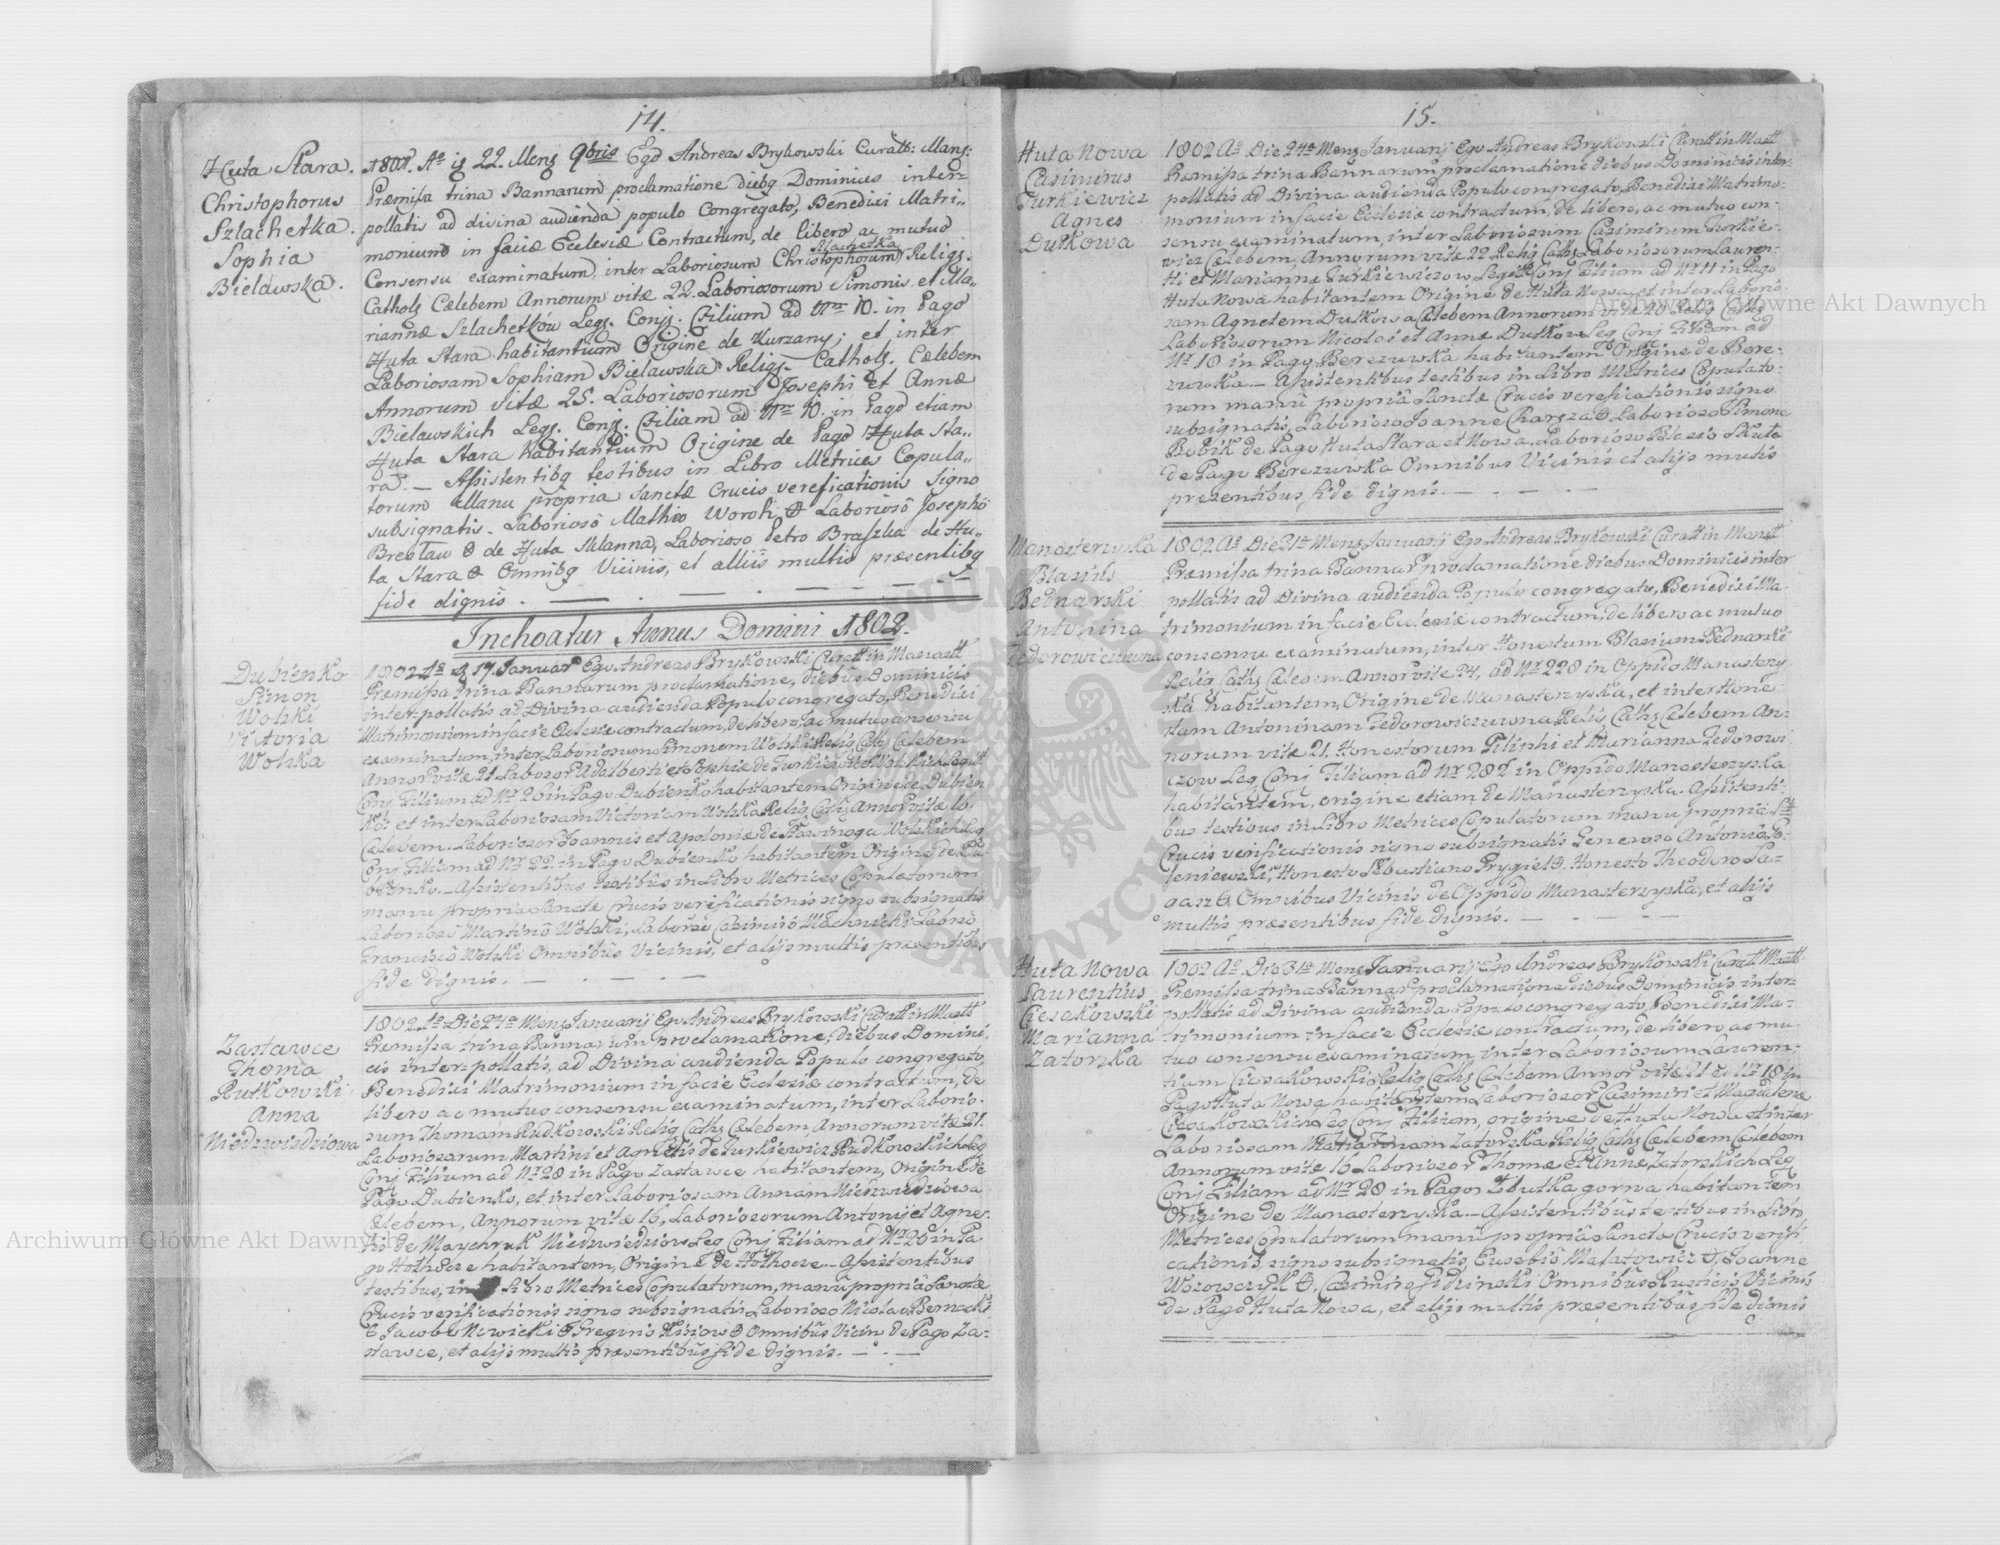 14.
Huta Stara.
Christophorus
Szlachetka.
Sophia
Bielawska.
1801. Ao ig 22. Meng 9bris Ego Andreas Brykowski Curatt: Mans:
Præmissa trina Bannarum proclamatione diebg Dominicis inter-
pollatis ad divina audienda populo Congregato, Benedixi Matri-
monium in faciæ Ecclesiæ Contractum, de libero ac mutuo
Consensu examinatum inter Laboriosum Christophorum Szlachetka Religs.
Cathols Cælebem Annorum vitæ 22. Laboriosorum Simonis et Ma-
riannæ Szlachetków Legs. Conjs. Filium ad Nro 10. in Pago
Huta Stara habitantium Origine de Kurzany; et inter
Laboriosam Sophiam Bielawska Religs. Cathols. Cælebem
Annorum vitæ 25. Laboriosorum Josephi et Annæ
Bielawskich Legs. Conjs. Filiam ad Nro 10. in Pago etiam
Huta Stara habitantium Origine de Pago Huta Sta-
ra. — Assistentibg testibus in Libro Metrices Copula-
torum Manu propria Sanctæ Crucis vereficationis Signo
subsignatis. Laborioso Mathio Woroh, Laborioso Josepho
Breslaw de Huta Sklanna, Laborioso Petro Braszka de Hu-
ta Stara Omnibg Vicinis, et alliis multis præsentibg
fide dignis.
Inchoatur Annus Domini 1802.
Dubienko
Simon
Wolski
Victoria
Wolska
1802 Ao 17. Januar Ego Andreas Brykowski Curatt in Manastt
Premissa trina Bannarum proclamatione, diebus Dominicis
inter-pollatis ad Divina audienda Populo congregato, Benedixi
Matrimonium in facie Eclesie contractum, de libero, ac mutuo consensu
examinatum, inter Laboriosum Simonem Wolski Relig Caths Cælebem
Annor vite 21 Laborsor Adalberti et Sophiæ de Turkiewicz Wolskich Legitt
Conj Filium ad Nr 26 in Pago Dubienko habitantem Origine de Dubien
ko: et inter Laboriosam Victoriam Wolska Relig Caths Annor vitæ 16
Cælebem. Laboriosor Joannis et Apoloniæ de Stawinoga Wolskich Leg
Conj Filiam ad Nr 22. in Pago Dubienko habitantem Origine de Du
bienko. — Assistentibus testibus in Libro Metrices Copulatorum
manu propria Sancte Crucis verificationis signo subsignatis
Laborioso Martino Wolski, Laborso Casimiro Machnicki Laborso
Francisco Wolski Omnibus Vicinis, et alijs multis presentibus
fide dignis.
Zastawce
Thoma
Rutkowski
Anna
Niedzwiedziowa
1802 Ao Die 24ta Mens Januarij Ego Andreas Brykowski Curatt in Mastt
Premissa trina Bannarum proclamatione, Diebus Domini-
cis inter-pollatis, ad Divina audienda Populo congregato,
Benedixi Matrimonium in facie Ecclesiæ contractum, de
libero ac mutuo consensu examinatum, inter Laborio-
sum Thomam Rudkowski Relig Caths Cælebem, Annorum vitæ 21.
Laboriosorum Martini et Agnetis de Turkiewicz Rudkowskich Leg
Conj Filium ad Nr 28 in Pago Zastawce habitantem, Origine de
Pago Dubienko, et inter Laboriosam Annam Niedzwiedziowa
Cælebem, Annorum vitæ 16, Laboriosorum Antonij et Agne-
tis de Maychruk Niedzwiedziow Leg Conj Filiam ad Nr 26 in Pa
go Hothocze habitantem, Origine de Hothocze — Assistentibus
testibus, in Libro Metrices Copulatorum, manu propria Sanctæ
Crucis verificationis signo subsignatis Laborioso Nicolao Bernacki
Jacobo Nowicki Gregorio Kisiow Omnibus Vicin de Pago Za-
stawce, et alijs multis presentibus fide dignis.
15.
Huta Nowa
Casimirus
Turkiewicz
Agnes
Dutkowa
1802 Ao Die 24ta Mens Januarij Ego Andreas Brykowski Curatt in Mastt
Premissa trina Bannarum proclamatione diebus Dominicis inter-
pollatis ad Divina audienda Populo congregato, Benedixi Matrimo-
monium in facie Ecclesiæ contractum, de libero, ac mutuo con-
sensu examinatum, inter Laboriosum Casimirum Turkie-
wicz Cælebem Annorum vite 22 Relig Caths Laboriosorum Lauren-
tii et Mariannæ Turkiewiczow Legitt Conj Filium ad Nr 11 in Pago
Huta Nowa habitantem Origine de Huta Nowa, et inter Laborio-
sam Agnetem Dutkowa Cælebem Annorum vitæ 20 Relig Caths
Laboriosorum Nicolai et Annæ Dutkow Leg Conj Filiam ad
Nr 18 in Pago Berezuwka habitantem Origine de Bere-
zuwka — Assistentibus testibus in Libro Metrices Copulato-
rum manu propria Sanctæ Crucis verificationis signo
subsignatis, Laborioso Joanne Charęza Laborioso Simone
Bobik de Pago Huta Stara et Nowa, Laborioso Blasio Skuta
de Pago Berezuwka Omnibus Vicinis et alijs multis
presentibus fide dignis.
Manasterzyska
Blasius
Bednarski
Antonina
Fedorowiczuwna
1802 Ao Die 31a Mens Januarij Ego Andreas Brykowski Curatt in Manastt
Præmissa trina Bannar proclamatione diebus Dominicis inter
pollatis ad Divina audienda Populo congregato, Benedixi Ma-
trimonium in facie Ecclesiæ contractum, de libero ac mutuo
consensu examinatum, inter Honestum Blasium Bednarski
Relig Caths Cælebem Annor vite 24, ad Nr 228 in Oppido Manasterzy
ska habitantem, Origine de Manasterzyska, et inter Hone-
stam Antoninam Fedorowiczuwna Relig Caths Cælebem An-
norum vitæ 21, Honestorum Filiphi et Marianna Fedorowi
czow Leg Conj Filiam ad Nr 282 in Oppido Manasterzyska
habitantem, origine etiam de Manasterzyska. Assistenti-
bus testibus in Libro Metrices Copulatorum manu propria Stæ
Crucis verificationis signo subsignatis Generoso Antonio Jo-
leniewski, Honesto Sebastiano Prygiel Honesto Theodoro Sa-
gasz Omnibus Vicinis de Oppido Manasterzyska, et alijs
multis præsentibus fide dignis.
Huta Nowa
Laurentius
Ciesakowski
Marianna
Zatorska
1802 Ao Die 31a Mens Januarij Ego Andreas Brykowski Curatt Mastt
Premissa trina Bannar proclamatione diebus Dominicis inter-
pollatis ad Divina audienda Populo congregato, Benedixi Ma-
trimonium in facie Ecclesiæ contractum, de libero ac mu-
tuo consensu examinatum, inter Laboriosum Lauren-
tium Ciesakowski Relig Caths Cælebem Annor vitæ 21 ad Nr 18 in
Pago Huta Nowa habitantem Laboriosor Casimiri et Magdalene
Ciesakowskich Leg Conj Filium, origine de Huta Nowa et inter
Laboriosam Mariannam Zatorska Relig Caths Cælebem Cælebem
Annorum vite 16 Laboriosor Thomæ et Annæ Zatorskich Leg
Conj Filiam ad Nr 28 in Pago Słobutka gorna habitantem
Origine de Manasterzyska — Assistentibus testibus in Libro
Metrices Copulatorum manu propria Sanctæ Crucis verifi
cationis, signo subsignatis, Eusebio Małatowicz, Joanne
Wozowczyk, Casimiro Sidzinski Omnibus Rusticis Vicinis
de Pago Huta Nowa, et alijs multis presentibus fide dignis
Archiwum Główne Akt Dawnych
Archiwum Główne Akt Dawnych